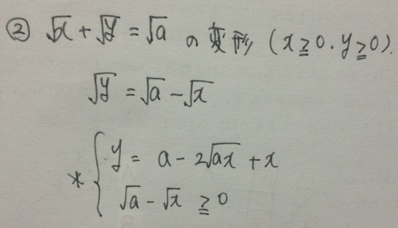 ② √x + √y = √a の変形 (x ≧ 0. y ≧ 0).
√y = √a - √x
* { y = a - 2√ax + x
√a - √x ≧ 0